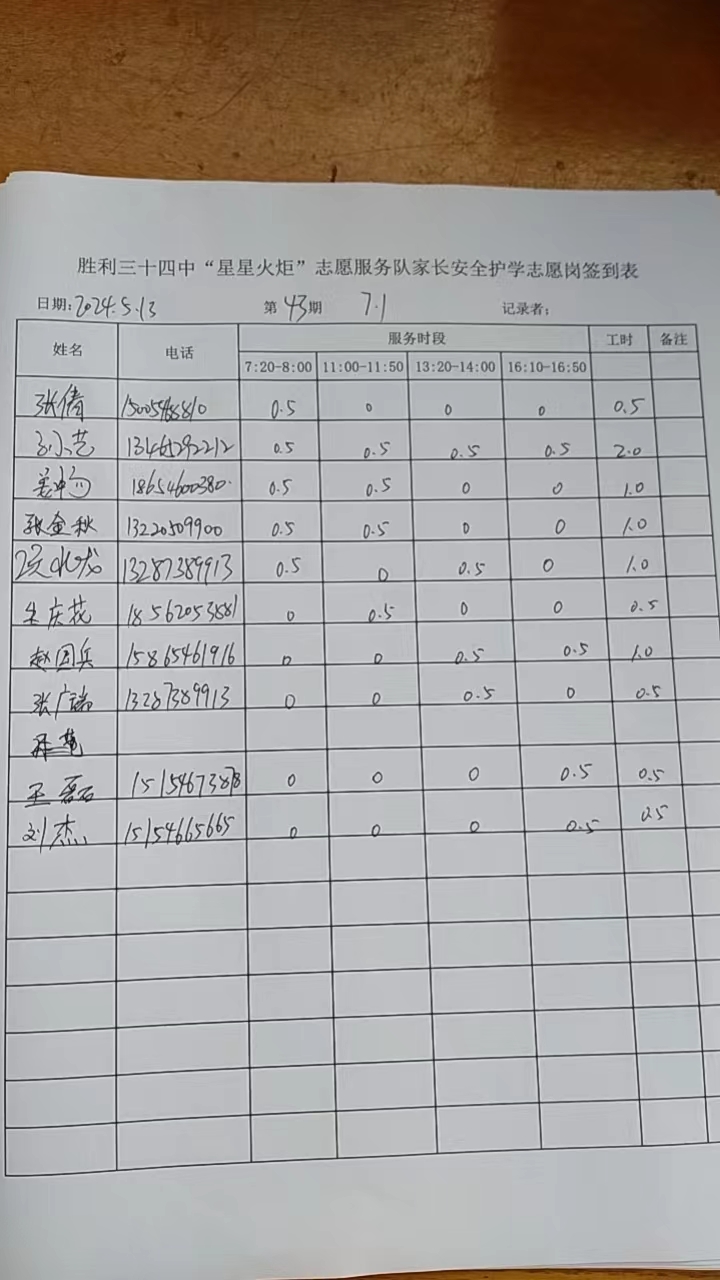 胜利三十四中“星星火炬”志愿服务队家长安全护学志愿岗签到表
日期:2024.5.13 第43期 7.1 记录者:
姓名 电话 服务时段 工时 备注
7:20-8:00 11:00-11:50 13:20-14:00 16:10-16:50
张倩 0.5 0 0 0 0.5
13465292212 0.5 0.5 0.5 0.5 2.0
18654600380 0.5 0.5 0 0 1.0
张金秋 13220509900 0.5 0.5 0 0 1.0
13287389913 0.5 0 0.5 0 1.0
18562053881 0 0.5 0 0 0.5
赵国兵 15865461916 0 0 0.5 0.5 1.0
张广瑞 13287389913 0 0 0.5 0 0.5
王磊 0 0 0 0.5 0.5
刘杰 15154665665 0 0 0 0.5 0.5